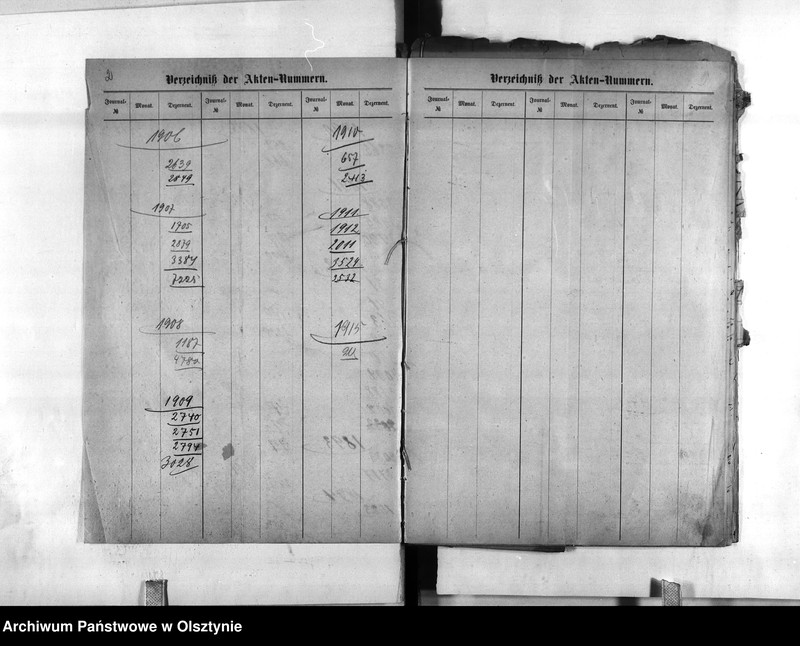 2
Verzeichniß der Akten-Nummern.
Journal-№ Monat. Dezernent. Journal-№ Monat. Dezernent. Journal-№ Monat. Dezernent.
1906
2639
2849
1907
1905
2879
3384
7225
1908
1187
1909
2740
2751
2794
3028
1910
657
2413
1911
1912
2011
3529
2532
1915
Verzeichniß der Akten-Nummern.
Journal-№ Monat. Dezernent. Journal-№ Monat. Dezernent. Journal-№ Monat. Dezernent.
Archiwum Państwowe w Olsztynie